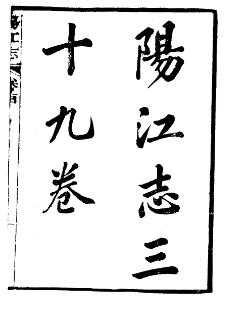 陽江志三
十九卷